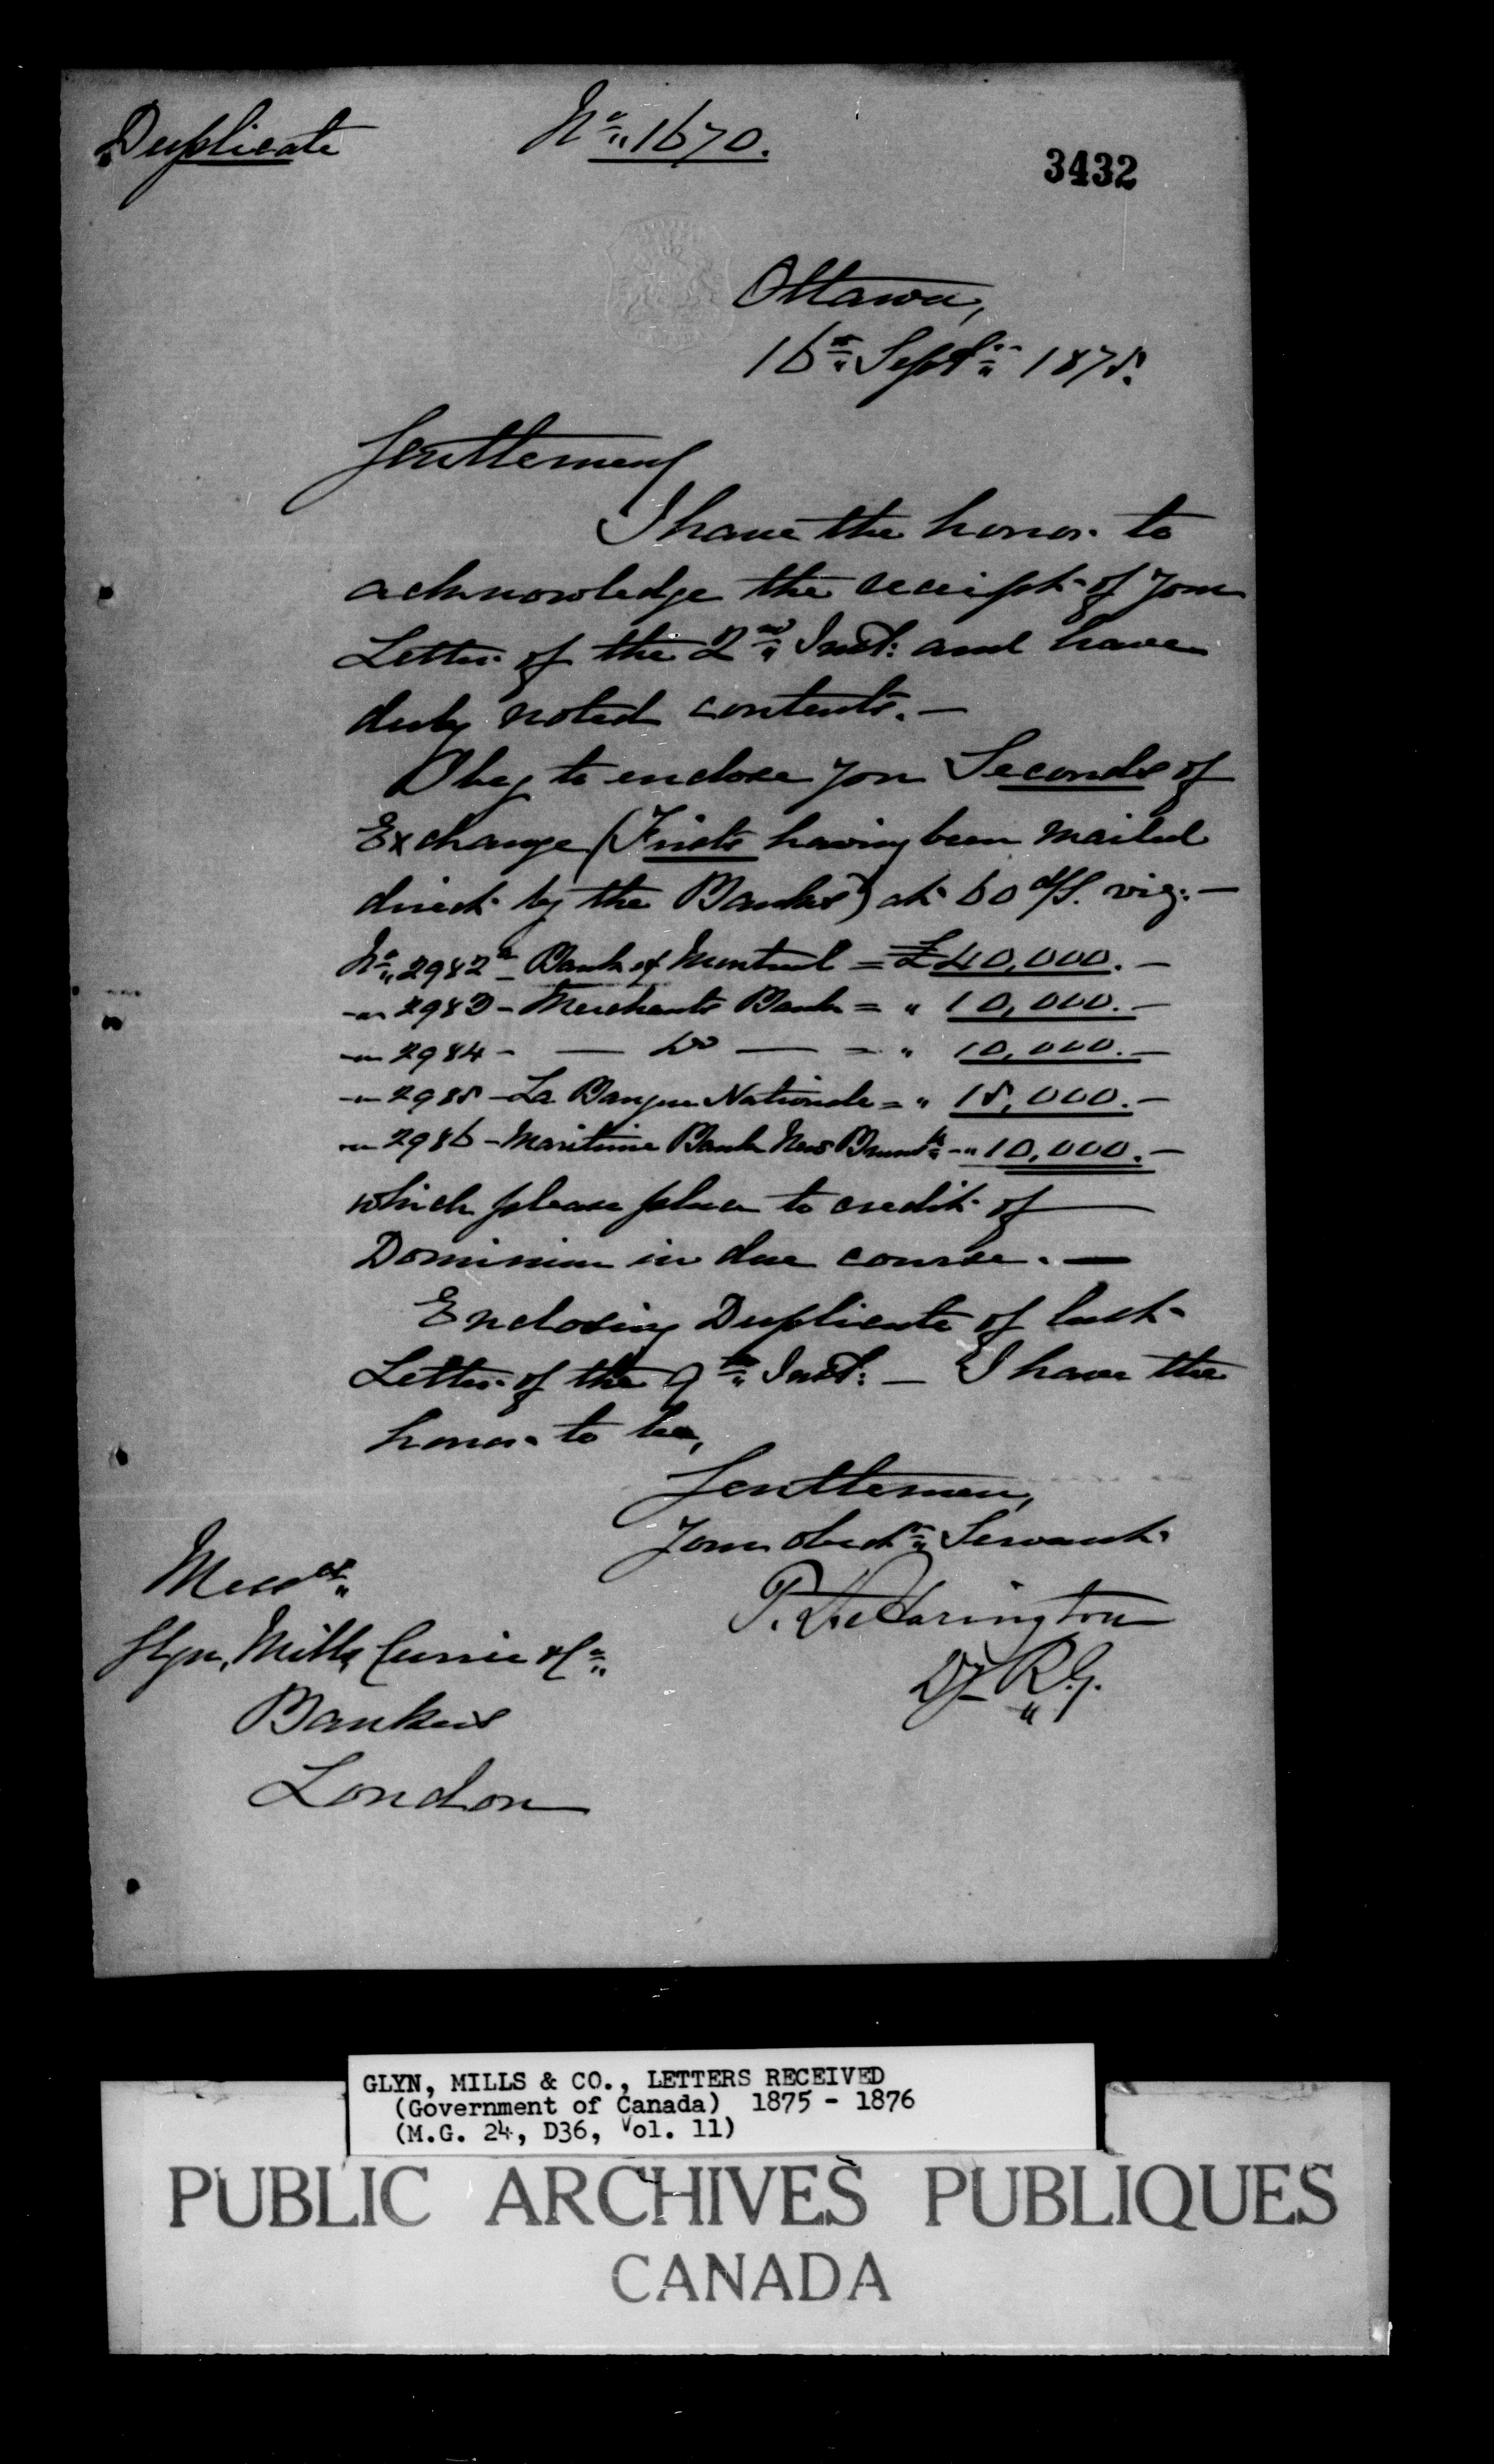 Duplicate
No. 1670.
3432
Ottawa,
16th Septr 1875.
Gentlemen
I have the honor to
acknowledge the receipt of your
Letter of the 2nd Inst: and have
duly noted contents. —
I beg to enclose you Seconds of
Exchange (Firsts having been mailed
direct by the Banks) at 60 d/s. viz: —
No. 2982 - Bank of Montreal = £40,000. —
-"- 2983 - Merchants Bank = " 10,000. —
-"- 2984 - — Do — = " 10,000. —
-"- 2985 - La Banque Nationale = " 15,000. —
-"- 2986 - Maritime Bank New Brunsk - " 10,000. —
which please place to credit of
Dominion in due course. —
Enclosing Duplicate of last
Letter of the 9th Inst: — I have the
honor to be,
Gentlemen,
Your obedt Servant
T. D. Harington
Dy R.G.
Messrs
Glyn, Mills, Currie & Co
Bankers
London
GLYN, MILLS & CO., LETTERS RECEIVED
(Government of Canada) 1875 - 1876
(M.G. 24, D36, Vol. 11)
PUBLIC ARCHIVES PUBLIQUES
CANADA